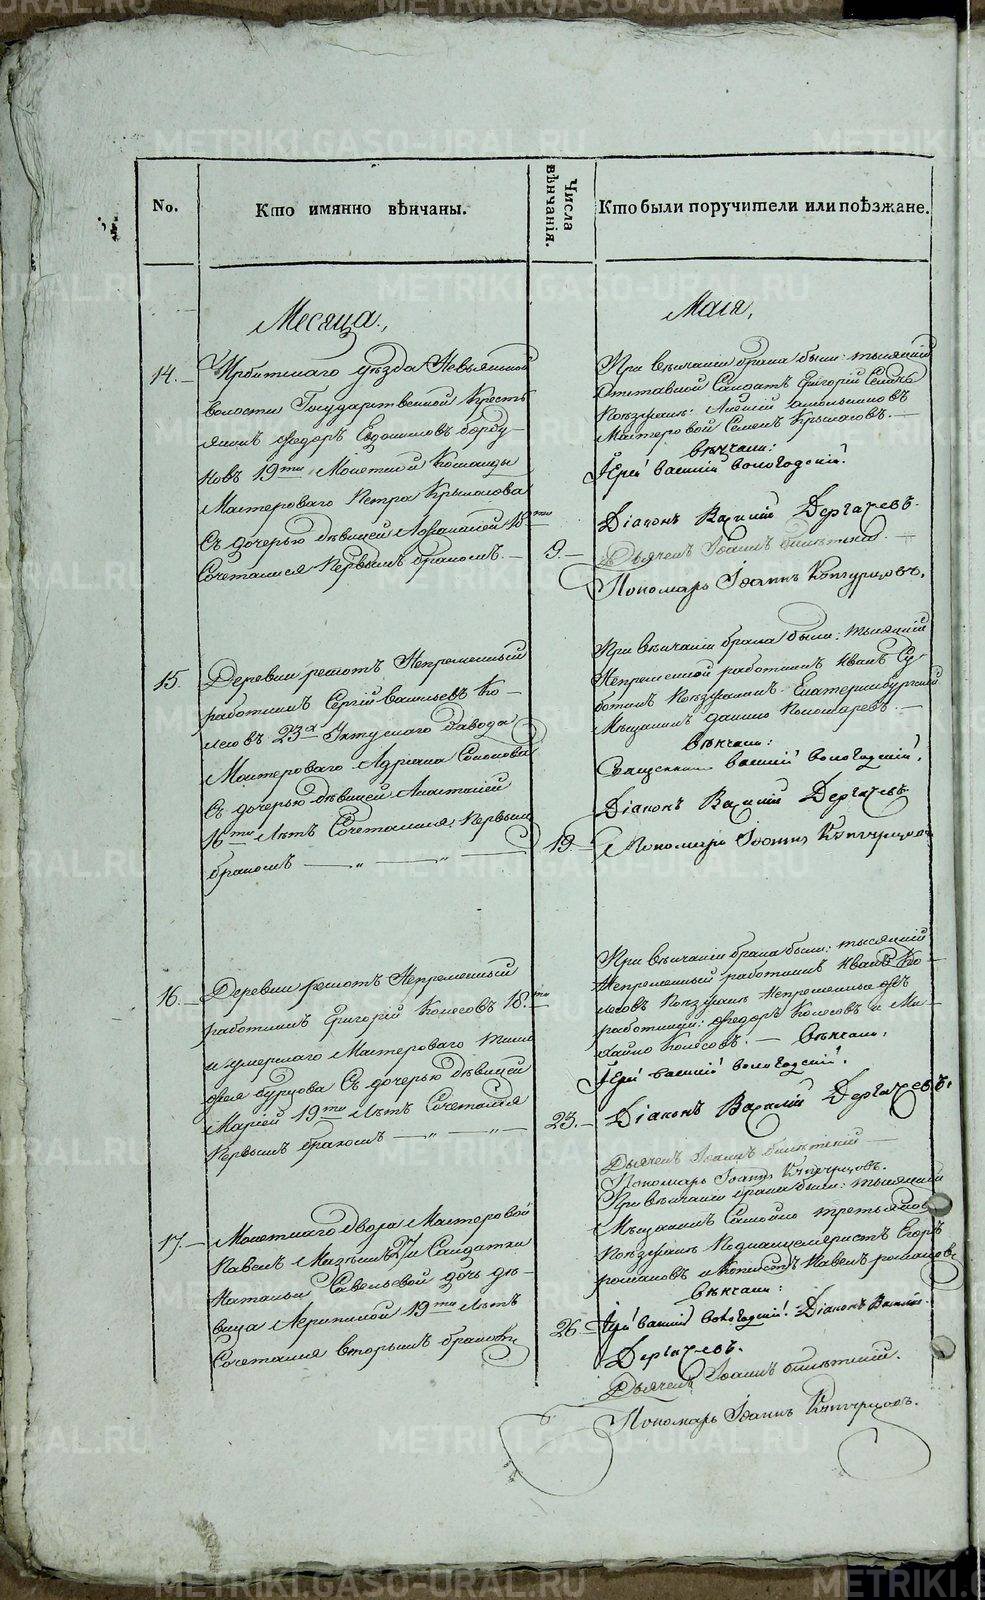 No.
Кто имянно вѣнчаны.
Числа вѣнчанія.
Кто были поручители или поѣзжане.
Месяца,
Маія,
14.
Ирбитскаго уѣзда Невьянской
волости Государственной Кресть
янинъ Федоръ Евдокимовъ
19ти Монетной Команды
Мастероваго Петра Крыласова
Съ дочерью дѣвицей 18ти
Сочетался Первымъ бракомъ.
9.
При вѣнчаніи брака были: тысяцкій
Отставной Солдатъ Григорій
Поѣзжане: Алексѣй
Мастеровой Семенъ Крыласовъ.
вѣнчали:
Іерей Василий Вологодский.
Діаконъ Василий Дергачевъ.
Дьячекъ Іоаннъ
Пономарь Іоаннъ
15.
Деревни решотъ Непременный
работникъ Сергій Васильевъ Ко-
лесовъ 23х Уктуского Завода
Мастероваго Адріана
Съ дочерью дѣвицей Анастасией
16ти Лѣтъ Сочетался Первымъ
бракомъ
19.
При вѣнчаніи брака были: тысяцкій
Непременной работникъ Иванъ Су-
ботинъ Поѣзжанинъ Екатеринбургский
Мѣщанинъ данило Пономаревъ.
Вѣнчали:
Священникъ Василий Вологодский.
Діаконъ Василий Дергачевъ
Пономарь Іоаннъ
16.
Деревни решотъ Непременный
работникъ Григорій Колесовъ 18.ти
и умершаго Мастероваго Тимо
фея Бурцова Съ дочерью дѣвицей
Марией 19ти Лѣтъ Сочетался
Первымъ бракомъ
23.
При вѣнчаніи брака были: тысяцкій
Непременный работникъ Иванъ Ко-
лесовъ Поѣзжане Непременные
работники: Федоръ Колесовъ и Ми-
хайло Колесовъ. Вѣнчали:
Іерей Василий Вологодский.
Діаконъ Василий Дергачевъ.
Дьячекъ Іоаннъ
Пономарь Іоаннъ
17.
Монетнаго двора Мастеровой
Павелъ 27 и Салдатки
Натальи Савельевой дочь дѣ-
вица 19ти Лѣтъ
Сочетался вторымъ бракомъ
26.
При вѣнчаніи брака были: тысяцкій
Мѣщанинъ Самойло третьяковъ
Поѣзжане Подканцеляристъ Егоръ
романовъ и Копиистъ Павелъ романовъ
Вѣнчали:
Іерей Василий Вологодский. Діаконъ Василий
Дергачевъ.
Дьячекъ Іоаннъ
Пономарь Іоаннъ
METRIKI.GASO-URAL.RU